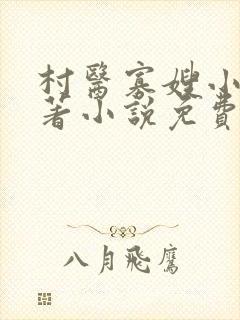 村醫寡嫂小
著小說免費
八月飛鷹